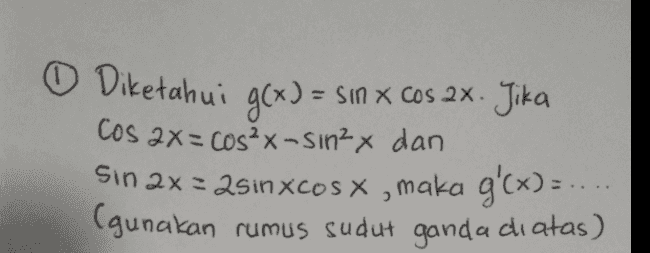 ① Diketahui g(x) = sin x cos 2x. Jika
cos 2x = cos²x - sin²x dan
sin 2x = 2sinxcos x, maka g'(x) = ....
(gunakan rumus sudut ganda diatas)